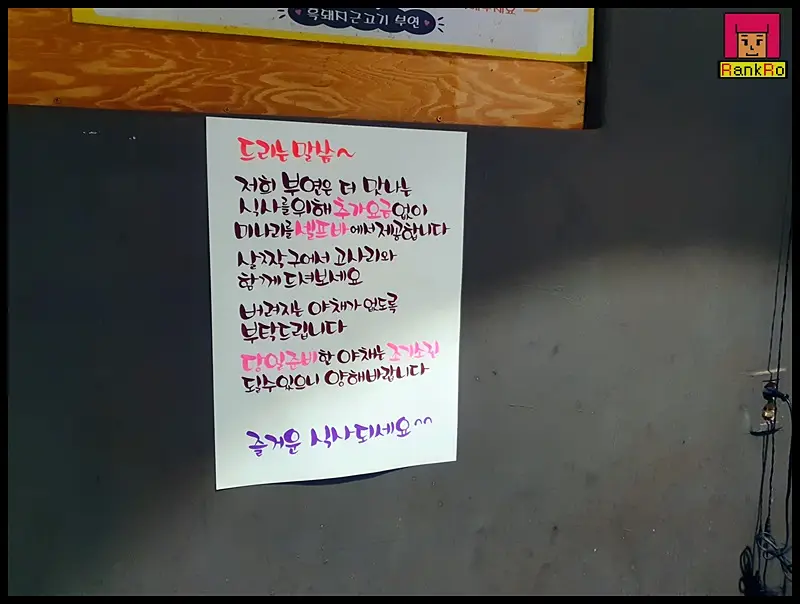 흑돼지근고기 부연
RankRo
드리는 말씀~
저희 부연은 더 맛나는
식사를위해 추가요금없이
미나리를 셀프바에서제공합니다
살짝구어서 고사리와
함께드셔보세요
버려지는 야채가 없도록
부탁드립니다
당일준비한 야채는 조기소진
될수있으니 양해바랍니다
즐거운 식사되세요^^